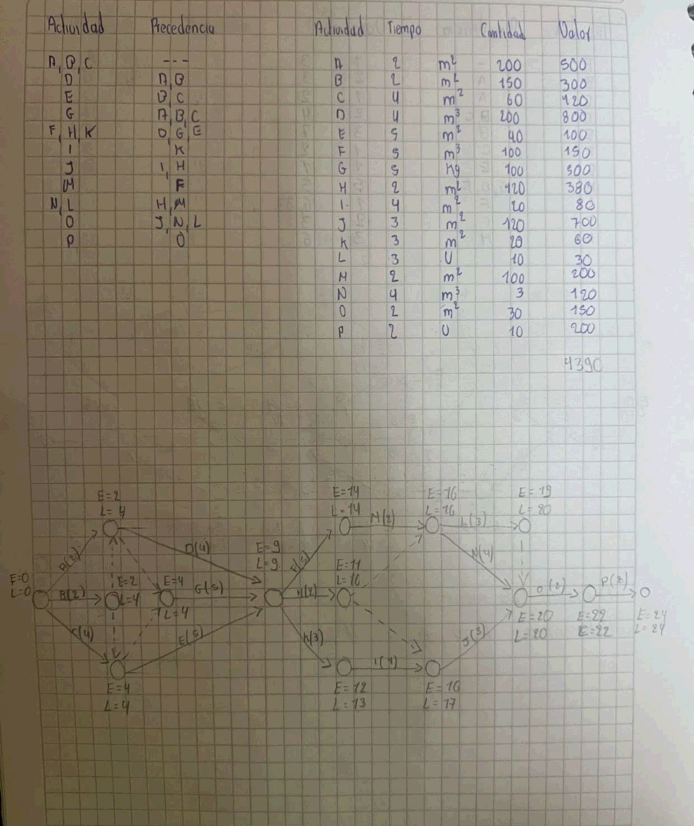 Actividad Precedencia Actividad Tiempo Cantidad Valor
A, B, C --- A 2 m² 200 500
D A, B B 2 m² 150 300
E B, C C 4 m² 60 420
G A, B, C D 4 m³ 200 800
F, H, K D, G, E E 5 m² 40 100
I K F 5 m³ 100 150
J I, H G 5 Kg 100 500
M F H 2 m² 120 380
N, L H, M I 4 m² 20 80
O J, N, L J 3 m² 120 700
P O K 3 m² 20 60
L 3 U 10 30
M 2 m² 100 200
N 4 m³ 3 120
O 2 m² 30 150
P 2 U 10 200
4390
E=2
L=4
E=14
L=14
E=16
L=16
E=19
L=20
M(2) L(3)
A(2) D(4)
E=9
L=9
F(5)
N(4)
E=0
L=0
B(2)
E=2
L=4
E=4
L=4
G(5)
H(2)
E=11
L=16
O(2) P(2)
E=20
L=20
E=22
E=22
E=24
L=24
C(4) E(5) K(3) I(4) J(3)
E=4
L=4
E=12
L=13
E=16
L=17